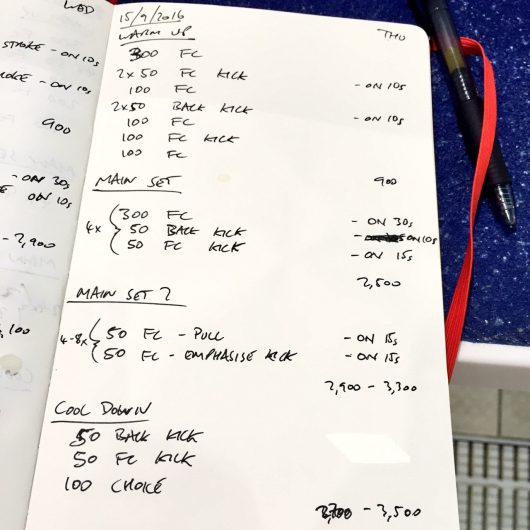 WED
STROKE - ON 10s
- ON 10s
900
- ON 30s
ON 10s
- 2,900
,100
15/9/2016
THU
WARM UP
300 FC
2x50 FC KICK
100 FC - ON 10s
2x50 BACK KICK
100 FC - ON 10s
100 FC KICK
100 FC
900
MAIN SET
4x 300 FC - ON 30s
50 BACK KICK - ON 10s
50 FC KICK - ON 15s
2,500
MAIN SET 2
4-8x 50 FC - PULL - ON 15s
50 FC - EMPHASISE KICK - ON 15s
2,900 - 3,300
COOL DOWN
50 BACK KICK
50 FC KICK
100 CHOICE
- 3,500